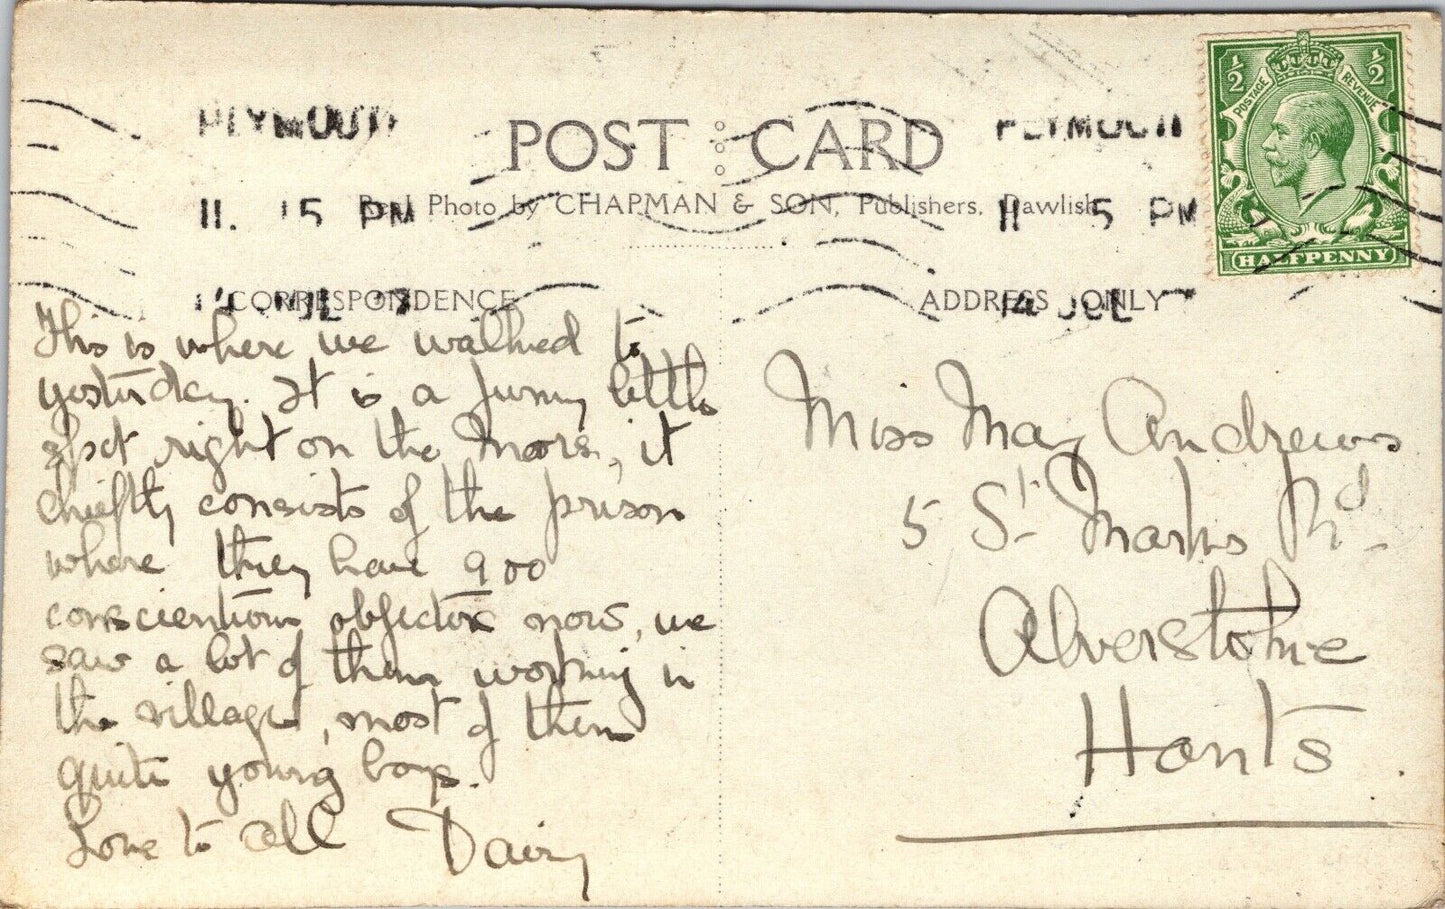 PLYMOUTH
11. 15 PM
14 JUL 17
POST CARD
Real Photo by CHAPMAN & SON, Publishers, Dawlish
PLYMOUTH
11 5 PM
14 JUL 17
½ ½
POSTAGE REVENUE
HALFPENNY
CORRESPONDENCE
This is where we walked to
yesterday. It is a funny little
spot right on the Moors, it
chiefly consists of the prison
where they have 900
conscientious objectors now, we
saw a lot of them working in
the village, most of them
quite young boys.
Love to all Daisy
ADDRESS ONLY
Miss May Andrews
5 St. Marks Rd.
Alverstoke
Hants.